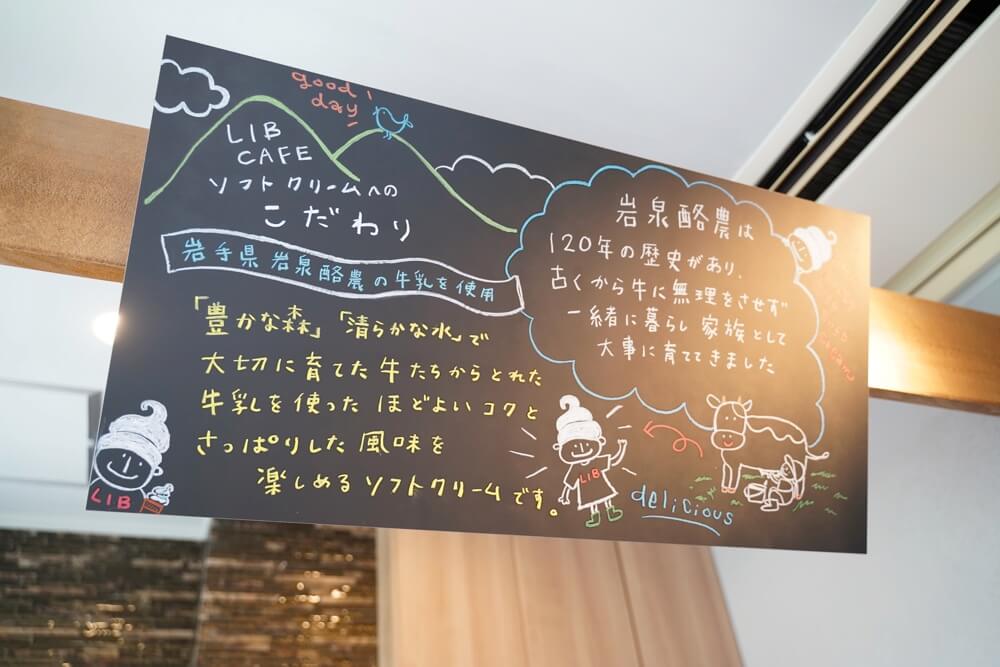 good!
day
LIB
CAFE
ソフトクリームへの
こだわり
岩手県 岩泉酪農の牛乳を使用
「豊かな森」「清らかな水」で
大切に育てた牛たちからとれた
牛乳を使った ほどよいコクと
さっぱりした風味を
楽しめるソフトクリームです。
LIB
岩泉酪農は
120年の歴史があり、
古くから牛に無理をさせず
一緒に暮らし 家族として
大事に育ててきました
LIB
delicious